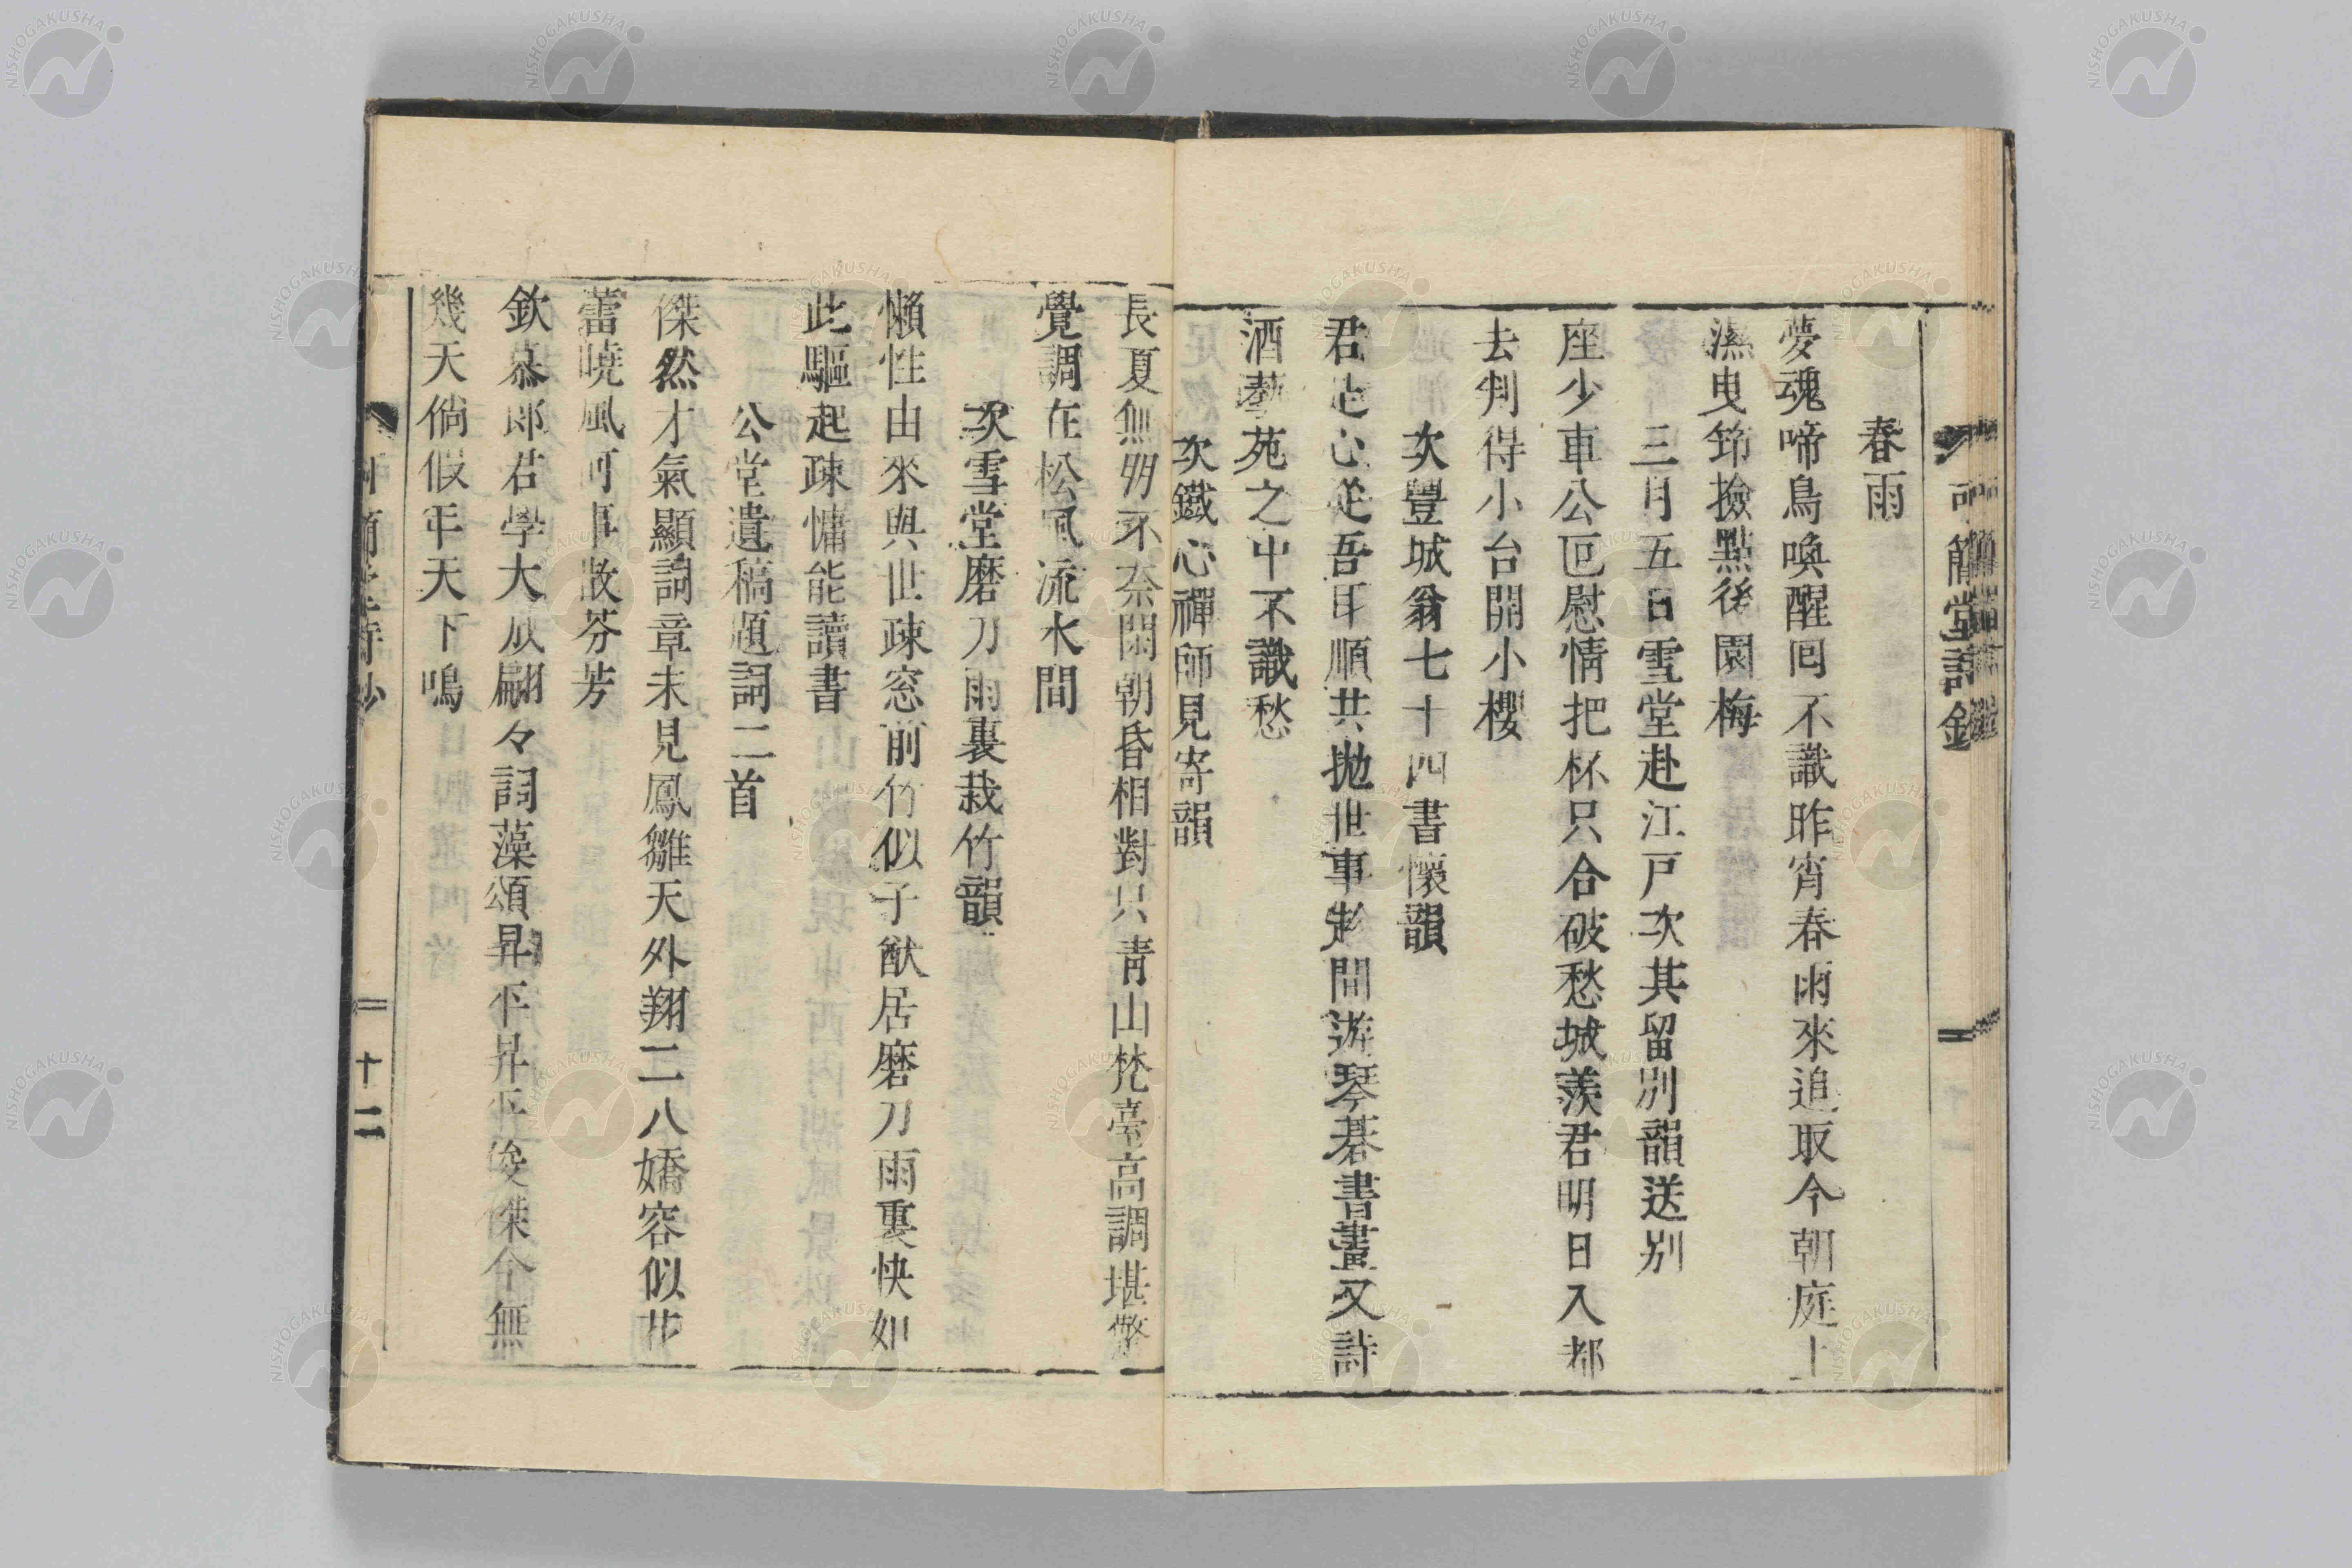 春雨
夢魂啼鳥喚醒囘不識昨宵春雨來追取今朝庭上
濕曳筇撿點後園梅
三月五日雪堂赴江戸次其留別韻送別
座少車公叵慰情把杯只合破愁城羨君明日入都
去判得小台開小櫻
次豐城翁七十四書懷韻
君是心從吾耳順共拋世事趁間遊琴碁書畫又詩
酒藝苑之中不識愁
次鐵心禪師見寄韻
長夏無朋不奈閑朝昏相對只青山梵臺高調堪
覺調在松風流水間
次雪堂磨刀雨裏栽竹韻
懶性由來與世疎窓前竹似子猷居磨刀雨裏快如
此驅起疎慵能讀書
公堂遺稿題詞二首
傑然才氣顯詞章未見鳳雛天外翔二八嬌容似花
蕾曉風何事散芬芳
欽慕郎君學大成翩々詞藻頌昇平昇平俊傑今無
幾天倘假年天下鳴
十二